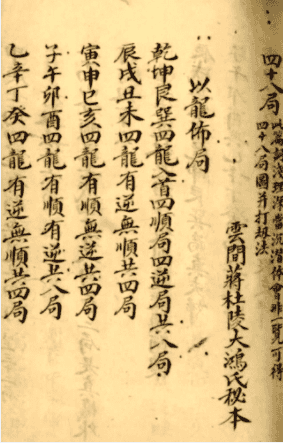 四十八局
此篇詞淺理深當沉潛體會非一覽可得
四十八局圖并打劫法
雲間蔣杜陵大鴻氏秘本
以龍佈局
乾坤艮巽四龍入首四順局四逆局共八局
辰戌丑未四龍有逆無順共四局
寅申巳亥四龍有順無逆共四局
子午卯酉四龍有順有逆共八局
乙辛丁癸四龍有逆無順共四局